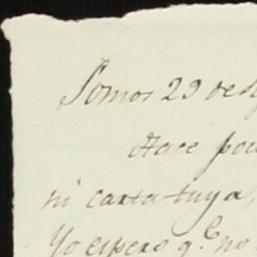 Somos 29 de
Hace
ni carta tuya,
Yo espero q.e no